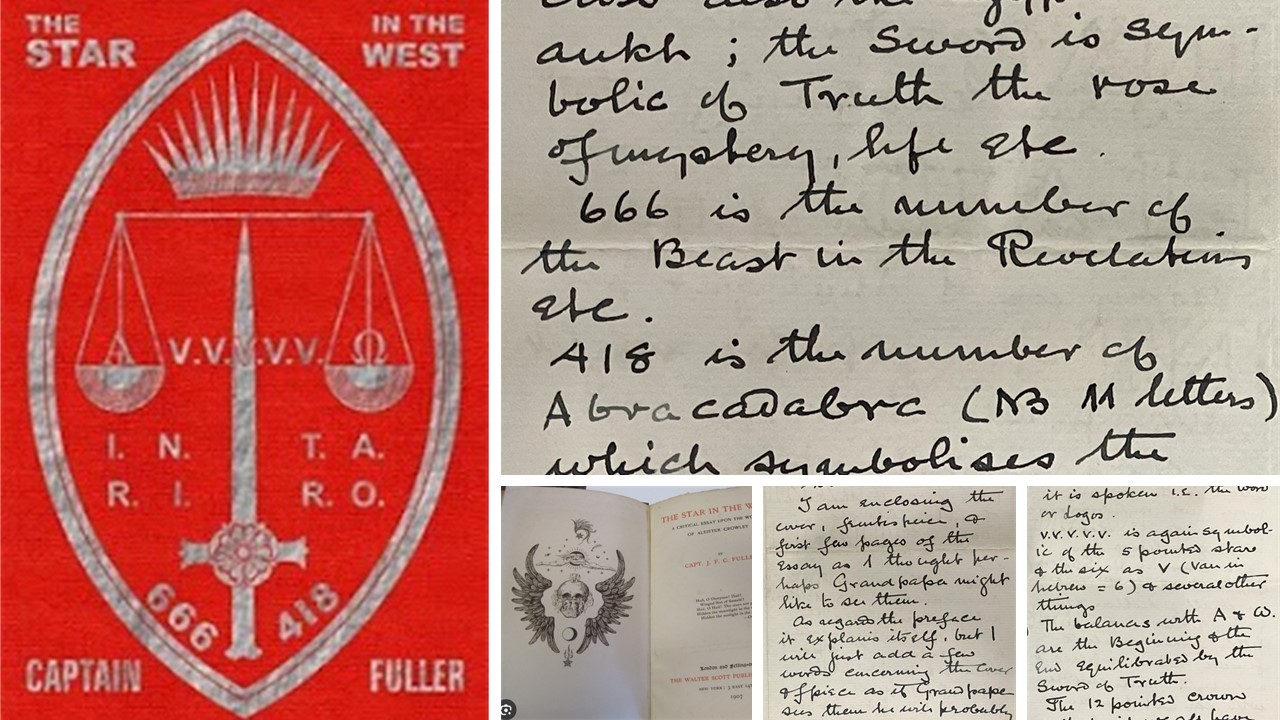 THE
STAR
IN THE
WEST
V.V.V.V.V.
Ω
I. N.
R. I.
T. A.
R. O.
666
418
CAPTAIN
FULLER
ankh ; the Sword is sym-
bolic of Truth the rose
of mystery, life etc.
666 is the number of
the Beast in the Revelations
etc.
418 is the number of
Abracadabra (NB 11 letters)
which symbolises the
THE STAR IN THE W
A CRITICAL ESSAY UPON THE WO
OF ALEISTER CROWLEY
BY
CAPT. J. F. C. FULLE
THE WALTER SCOTT PUBLI
1907
I am enclosing the
cover, frontispiece, &
first few pages of the
Essay as I thought per-
haps Grandpapa might
like to see them.
As regards the preface
it explains itself, but I
will just add a few
words concerning the cover
& f'piece as if Grandpapa
sees them he will probably
it is spoken I.E. the word
or Logos.
V.V.V.V.V. is again symbol-
ic of the 5 pointed star
& the six as V (Vau in
hebrew = 6) & several other
things
The balances with A & Ω.
are the Beginning & the
End Equilibrated by the
Sword of Truth.
The 12 pointed crown